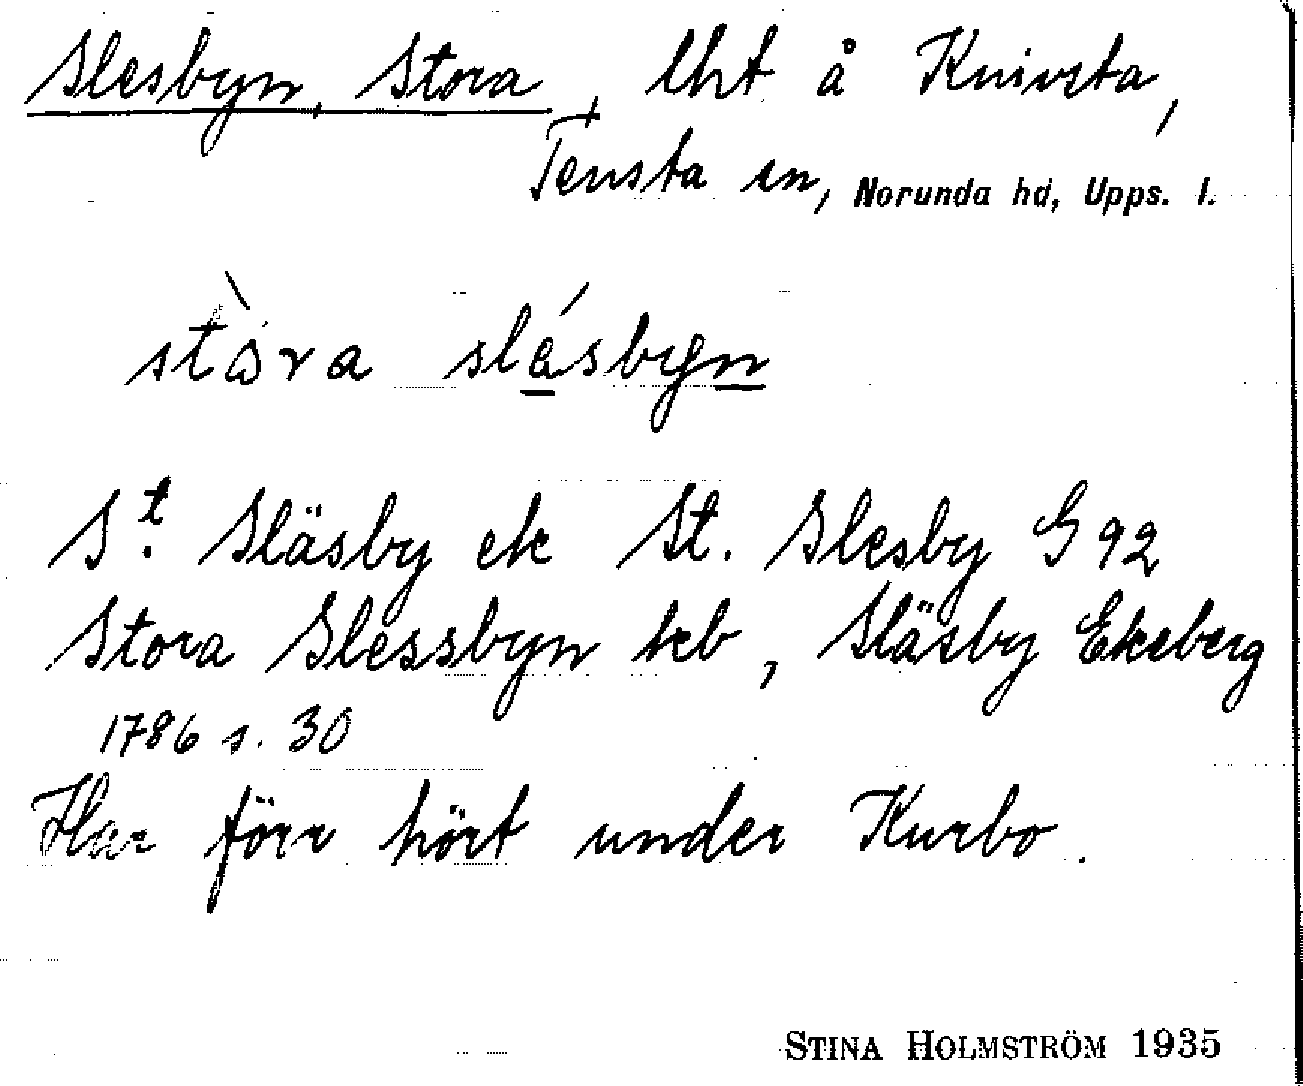 Slesbyn, Stora, lht å Knivsta,
Tensta sn, Norunda hd, Upps. l.
stòra slésbyn
St. Släsby ek St. Slesby G 92
Stora Slessbyn kcb, Släsby Ekeberg
1786 s. 30
Har förr hört under Kurbo.
STINA HOLMSTRÖM 1935